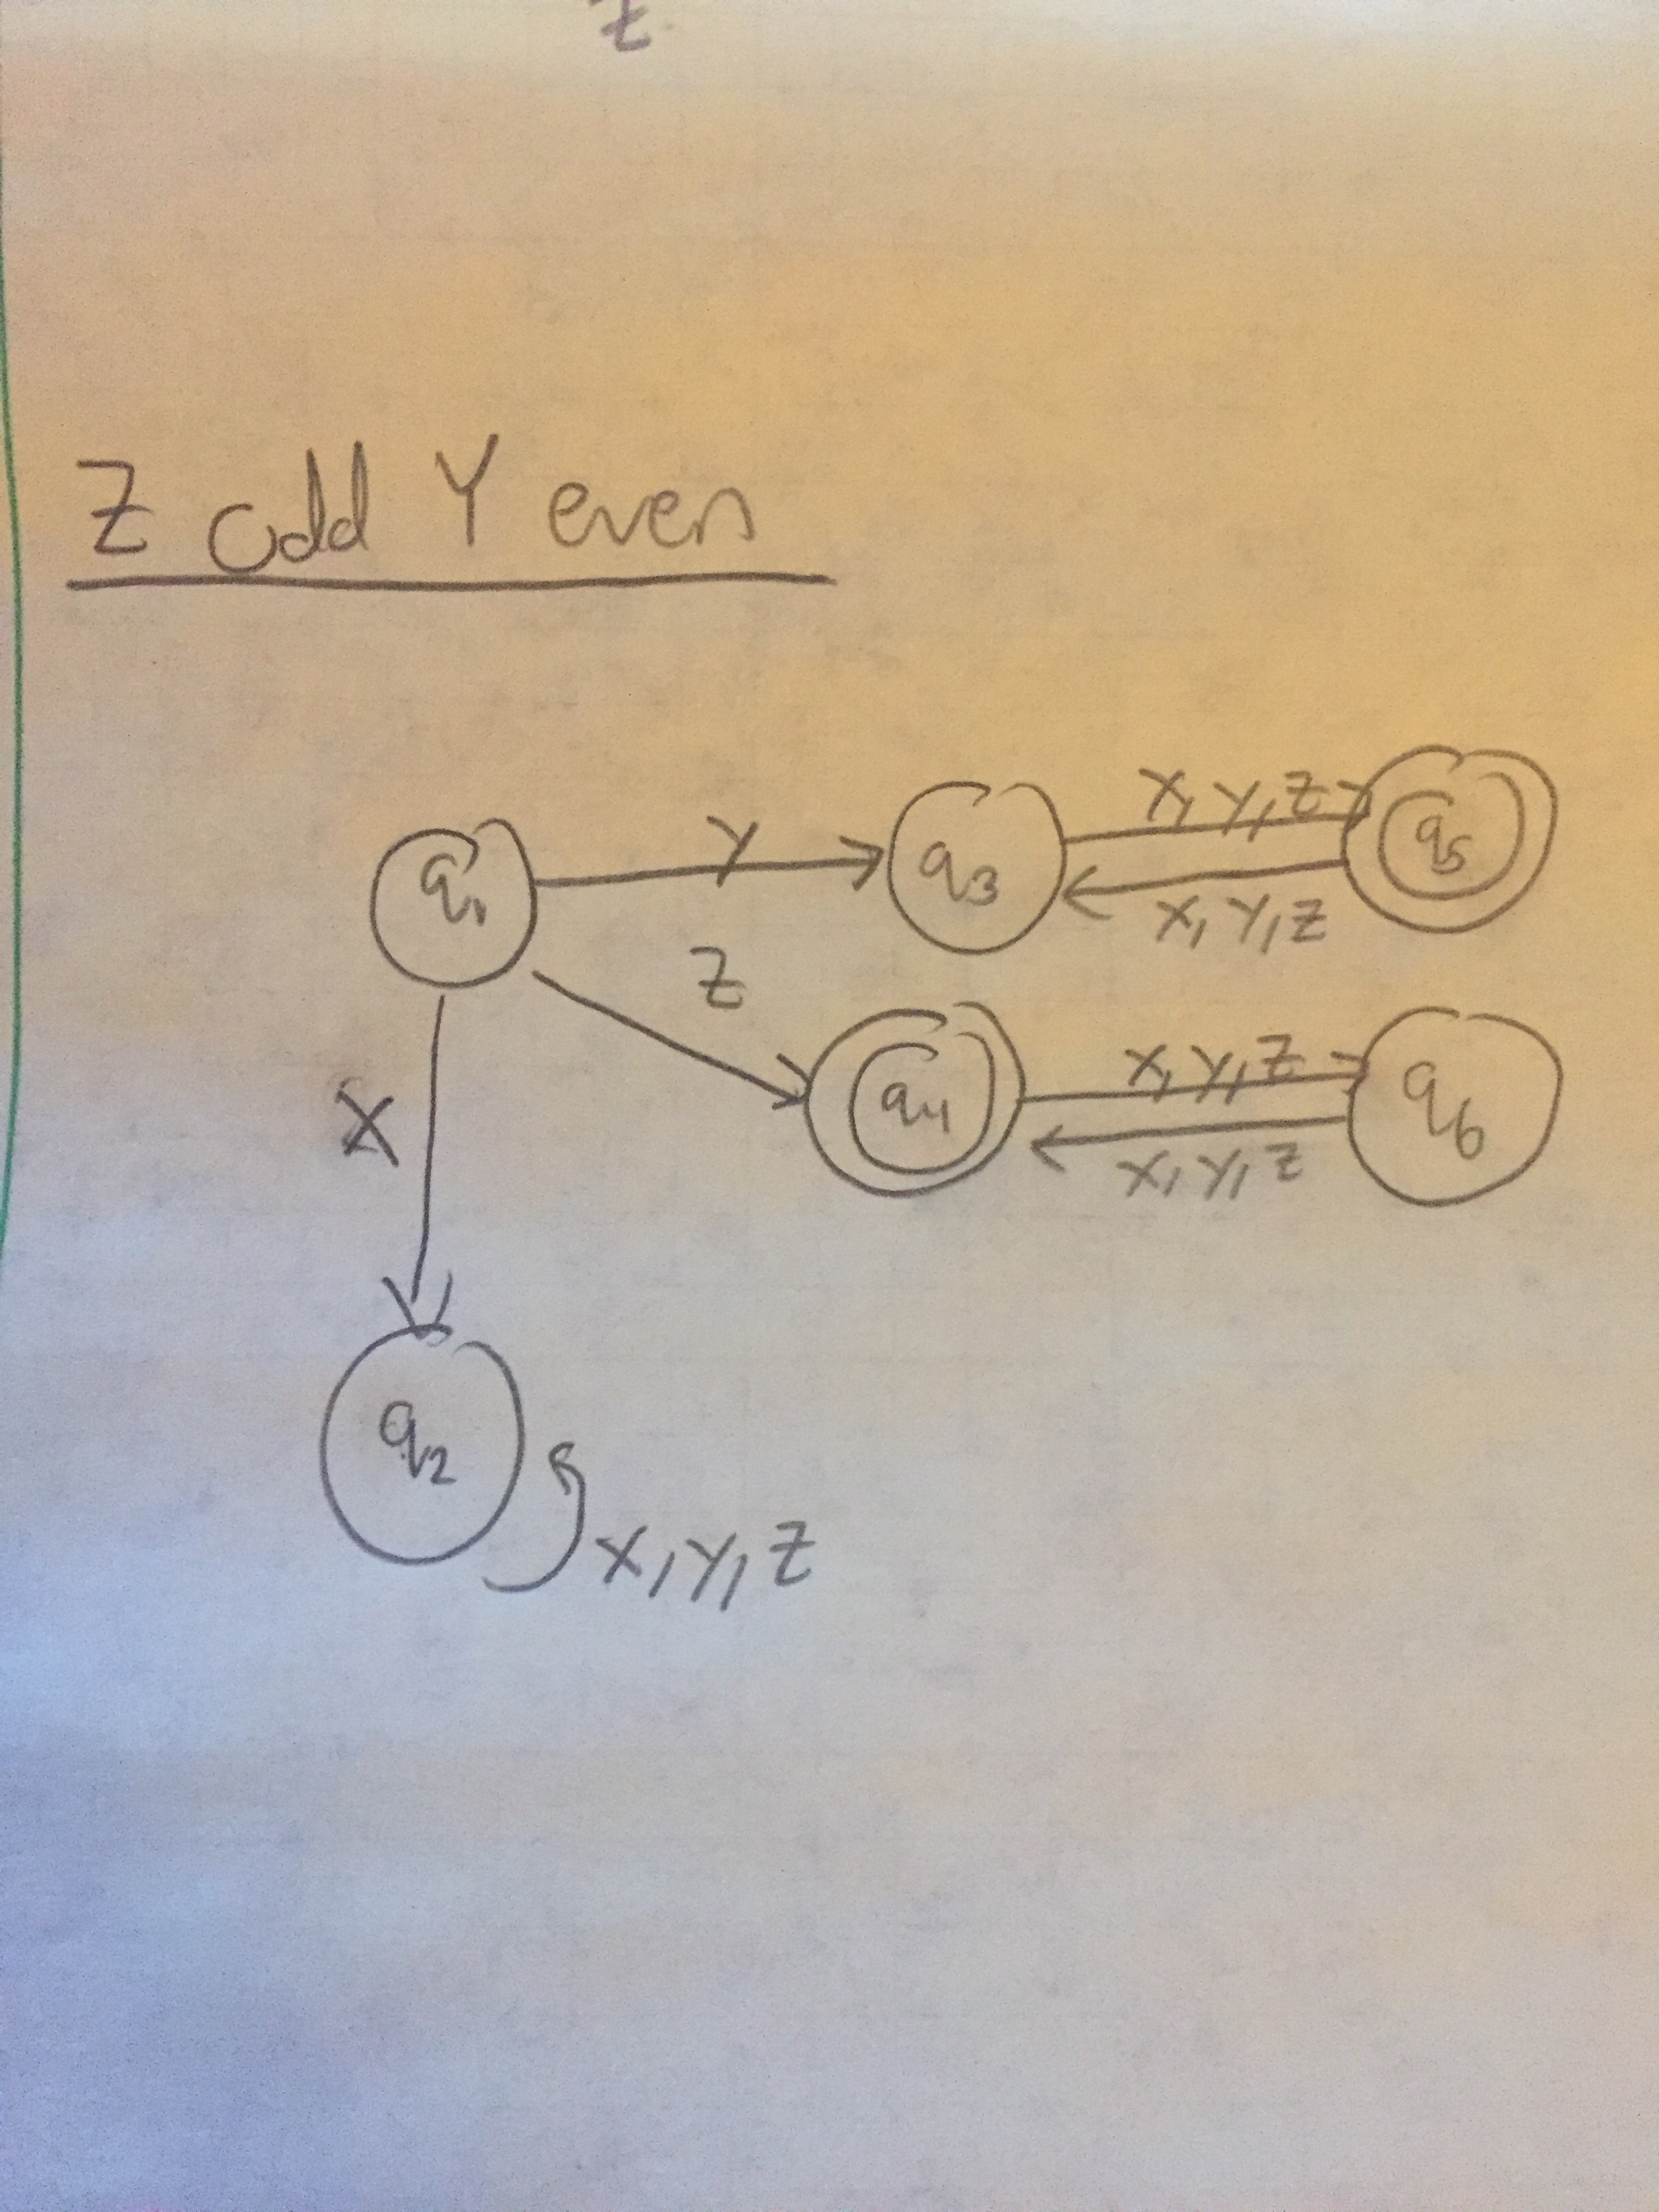 Z
Z odd Y even
q1
Y
q3
X, Y, Z
q5
X, Y, Z
Z
q4
X, Y, Z
q6
X, Y, Z
X
q2
X, Y, Z